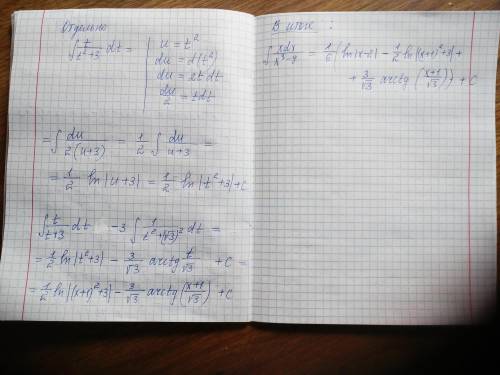 Отдельно
∫ t/(t²+3) dt = | u = t²
| du = d(t²)
| du = 2t dt
| du/2 = t dt
= ∫ du/(2(u+3)) = 1/2 ∫ du/(u+3) =
= 1/2 ln|u+3| = 1/2 ln|t²+3| + C
∫ t/(t+3) dt - 3 ∫ 1/(t²+(√3)²) dt =
= 1/2 ln|t²+3| - 3/√3 arctg t/√3 + C =
= 1/2 ln|(x+1)²+3| - 3/√3 arctg (x+1/√3) + C
В итоге:
∫ xdx/(x³-8) = 1/6 (ln|x-2| - 1/2 ln|(x+1)²+3| +
+ 3/√3 arctg (x+1/√3)) + C